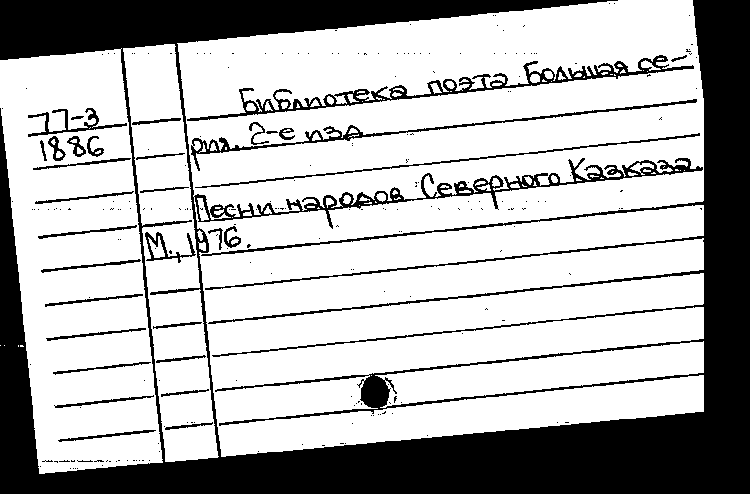 77-3
1886
Библиотека поэта Большая се-
рия. 2-е изд
Песни народов Северного Кавказа.
М., 1976.